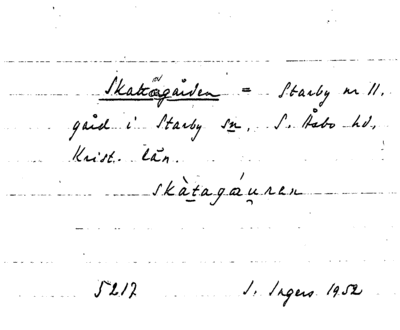 Skattagården = Starby nr 11,
gård i Starby sn, S. Åsbo hd,
Krist. län.
skàtagáu̯ren
5217 I. Ingers 1952